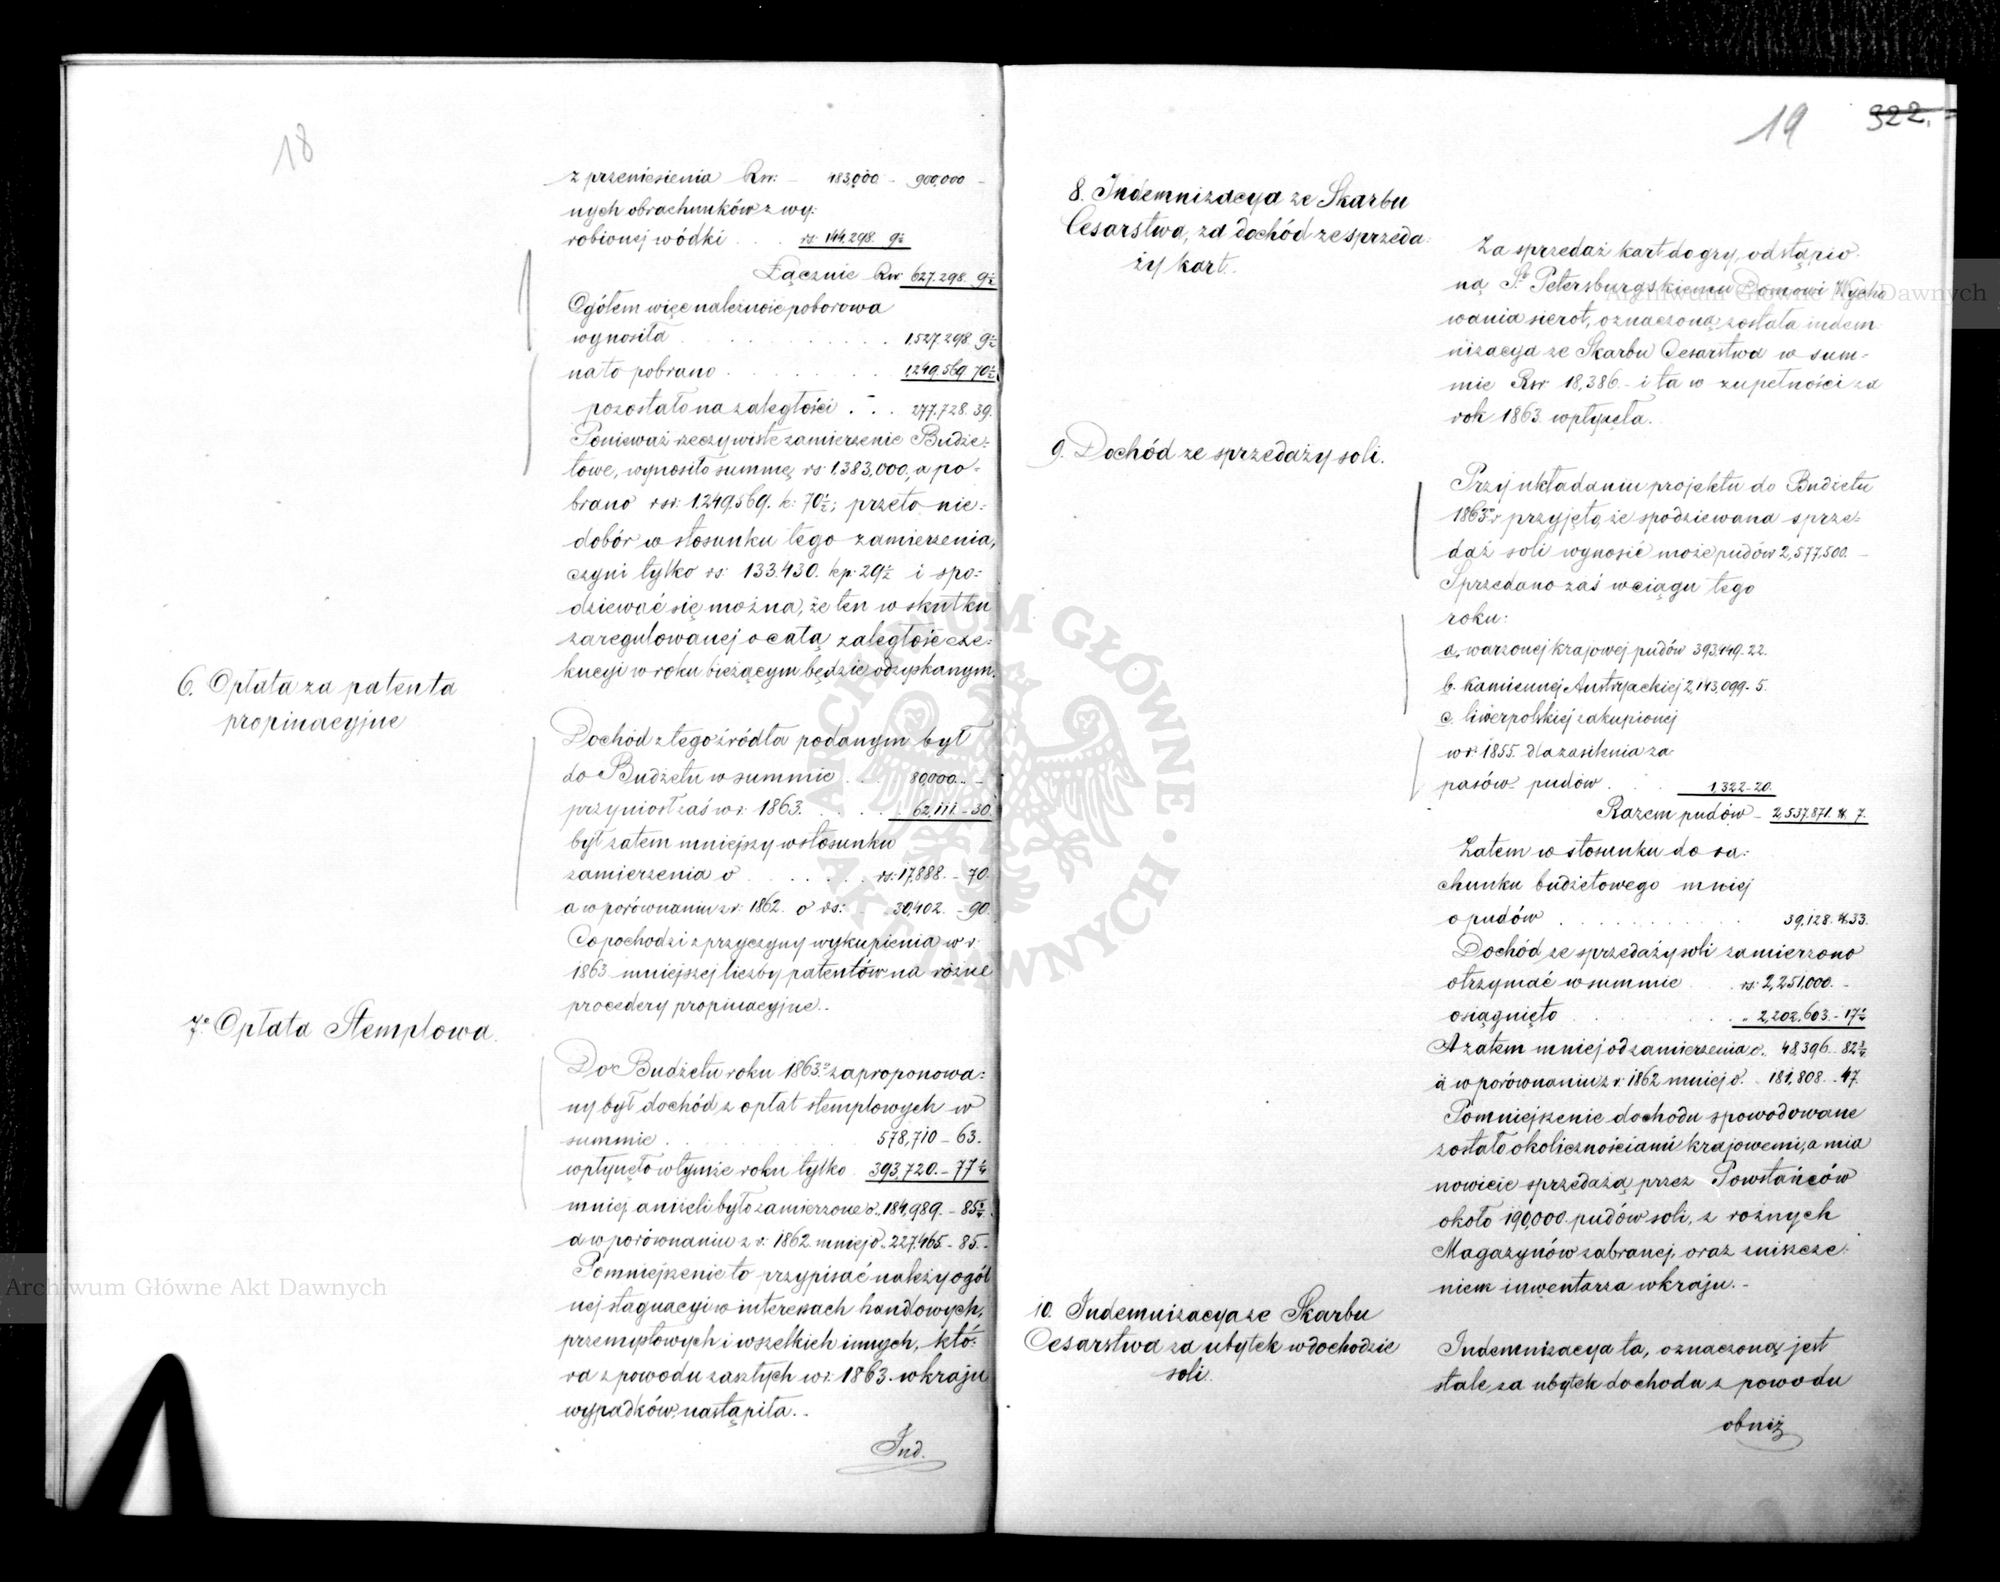 18
z przeniesienia Rsr. – 483,000 – 900,000 –
nych obrachunków z wy:
robionej wódki . . . rs. 144,298. 9½
Łącznie Rsr. 627.298 9½
Ogółem więc należność poborowa
wynosiła . . . . . . . . 1.527.298 9½
na to pobrano . . . . . . . 1.249.569 70½
pozostało na zaległości . – . 277.728. 39.
Ponieważ rzeczywiste zamierzenie Budże-
towe, wynosiło summę rs. 1.383,000, a po-
brano rsr. 1.249.569. k: 70½; przeto nie-
dobór w stosunku tego zamierzenia,
czyni tylko rs. 133.430. kp. 29½ i spo-
dziewać się można, że ten w skutku
zaregulowanej o całą zaległość exe-
kucyi w roku bieżącym będzie odzyskanym.
6. Opłata za patenta
propinacyjne
Dochód z tego źródła podanym był
do Budżetu w summie . . . 80,000. –
przyniosł zaś w r. 1863. . . . . 62,111. – 30.
był zatem mniejszy w stosunku
zamierzenia o . . . . . . rs. 17,888. – 70.
a w porównaniu z r. 1862. o rs: . 30,402. – 90.
Co pochodzi z przyczyny wykupienia w r.
1863 mniejszej liczby patentów na różne
procedery propinacyjne. –
7º. Opłata Stemplowa.
Do Budżetu roku 1863º zaproponowa-
ny był dochód z opłat stemplowych w
summie . . . . . . . . 578,710 – 63.
wpłynęło w tymże roku tylko . 393,720. – 77¼
mniej aniżeli było zamierzone o. 184,989. – 85¾
a w porównaniu z r. 1862. mniej o. 227.465 – 85. –
Pomniejszenie to przypisać należy ogól
nej stagnacyi w interesach handlowych,
przemysłowych i wszelkich innych, któ-
ra z powodu zaszłych w r. 1863. w kraju
wypadków, nastąpiła. –
Ind.
19
322.
8. Indemnizacya ze Skarbu
Cesarstwa, za dochód ze sprzeda-
ży kart.
Za sprzedaż kart do gry, odstąpio-
ną St. Petersburgskiemu Domowi Wycho
wania sierot, oznaczoną została indem
nizacya ze Skarbu Cesarstwa w sum-
mie Rsr. 18,386. – i ta w zupełności za
rok 1863 wpłynęła.
9. Dochód ze sprzedaży soli.
Przy układaniu projektu do Budżetu
1863º r przyjęto, że spodziewana sprze-
daż soli wynosić może pudów 2,577.500. –
Sprzedano zaś w ciągu tego
roku:
a. warzonej krajowej pudów 393.449. 22.
b. kamiennej Austryackiej 2,143,099. 5.
c. liwerpolskiej zakupionej
w r. 1855. dla zasilenia za
pasów pudów . . 1,322 – 20.
Razem pudów – 2,537.871. 7.
Zatem w stosunku do ra-
chunku budżetowego mniej
o pudów . . . . . . . . 39,128. 33.
Dochód ze sprzedaży soli zamierzono
otrzymać w summie . . rs. 2,251,000. –
osiągnięto . . . . . . . „ 2,202.603. – 17¼
A zatem mniej od zamierzenia o. 48,396. 82¾
a w porównaniu z r. 1862 mniej o. – 181,808. – 47.
Pomniejszenie dochodu spowodowane
zostało okolicznościami krajowemi, a mia
nowicie sprzedażą przez Powstańców
około 190,000. pudów soli, z rożnych
Magazynów zabranej, oraz zniszcze-
niem inwentarza w kraju. –
10. Indemnizacya ze Skarbu
Cesarstwa za ubytek w dochodzie
soli.
Indemnizacya ta, oznaczoną jest
stale za ubytek dochodu z powodu
obniż
Archiwum Główne Akt Dawnych
Archiwum Główne Akt Dawnych
ARCHIWUM GŁÓWNE AKT DAWNYCH